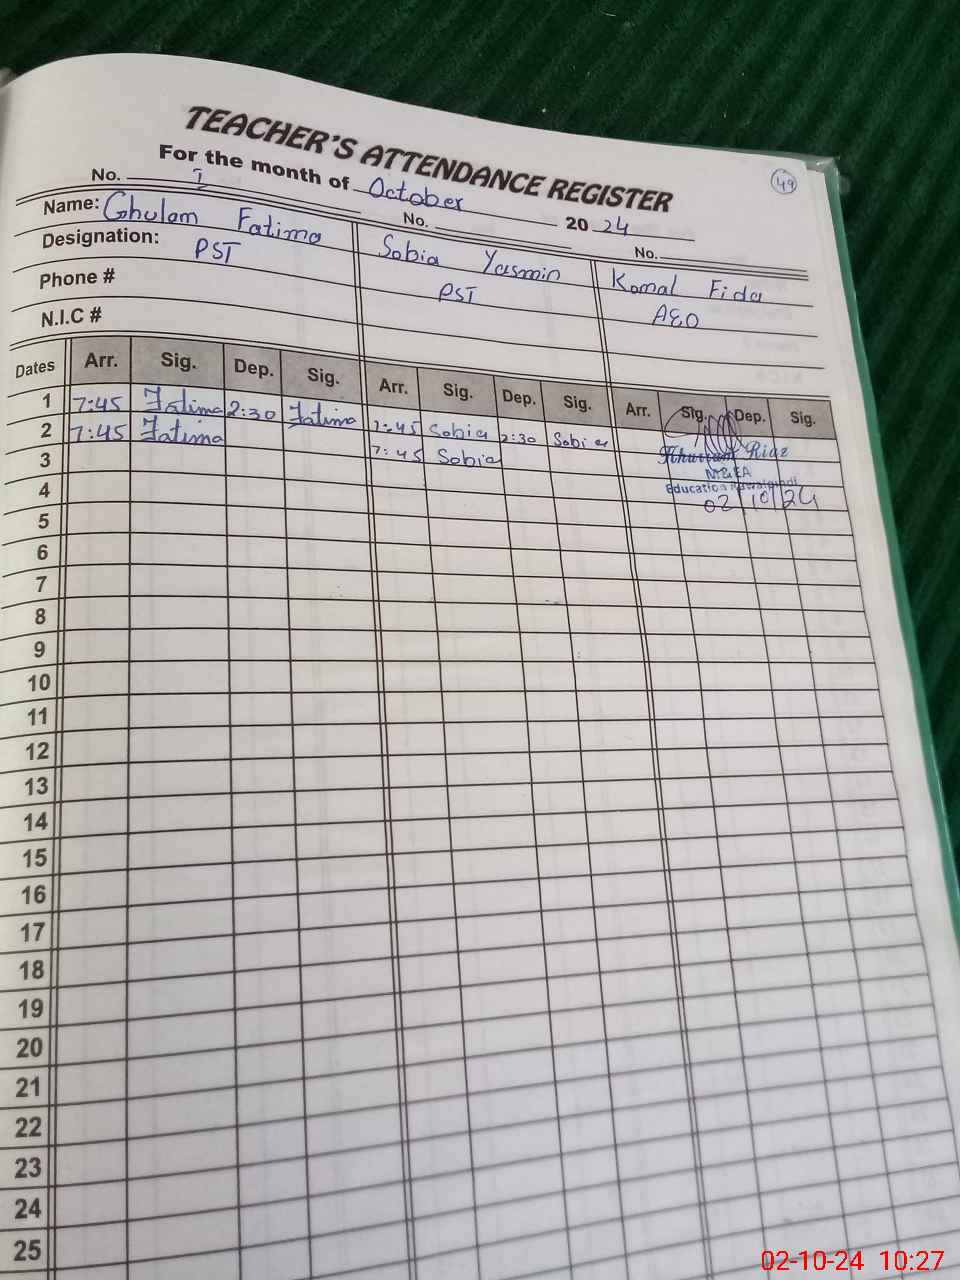 49
TEACHER'S ATTENDANCE REGISTER
For the month of October 2024
No. I No. No.
Name: Ghulam Fatima Sobia Yasmin Komal Fida
Designation: PST PST AEO
Phone #
N.I.C #
Dates Arr. Sig. Dep. Sig. Arr. Sig. Dep. Sig. Arr. Sig. Dep. Sig.
1 7:45 Fatima 2:30 Fatima 7:45 Sobia 2:30 Sobia
2 7:45 Fatima 7:45 Sobia
Khurram Riaz
M&EA
Education Rawalpindi
02/10/24
3
4
5
6
7
8
9
10
11
12
13
14
15
16
17
18
19
20
21
22
23
24
25
02-10-24 10:27